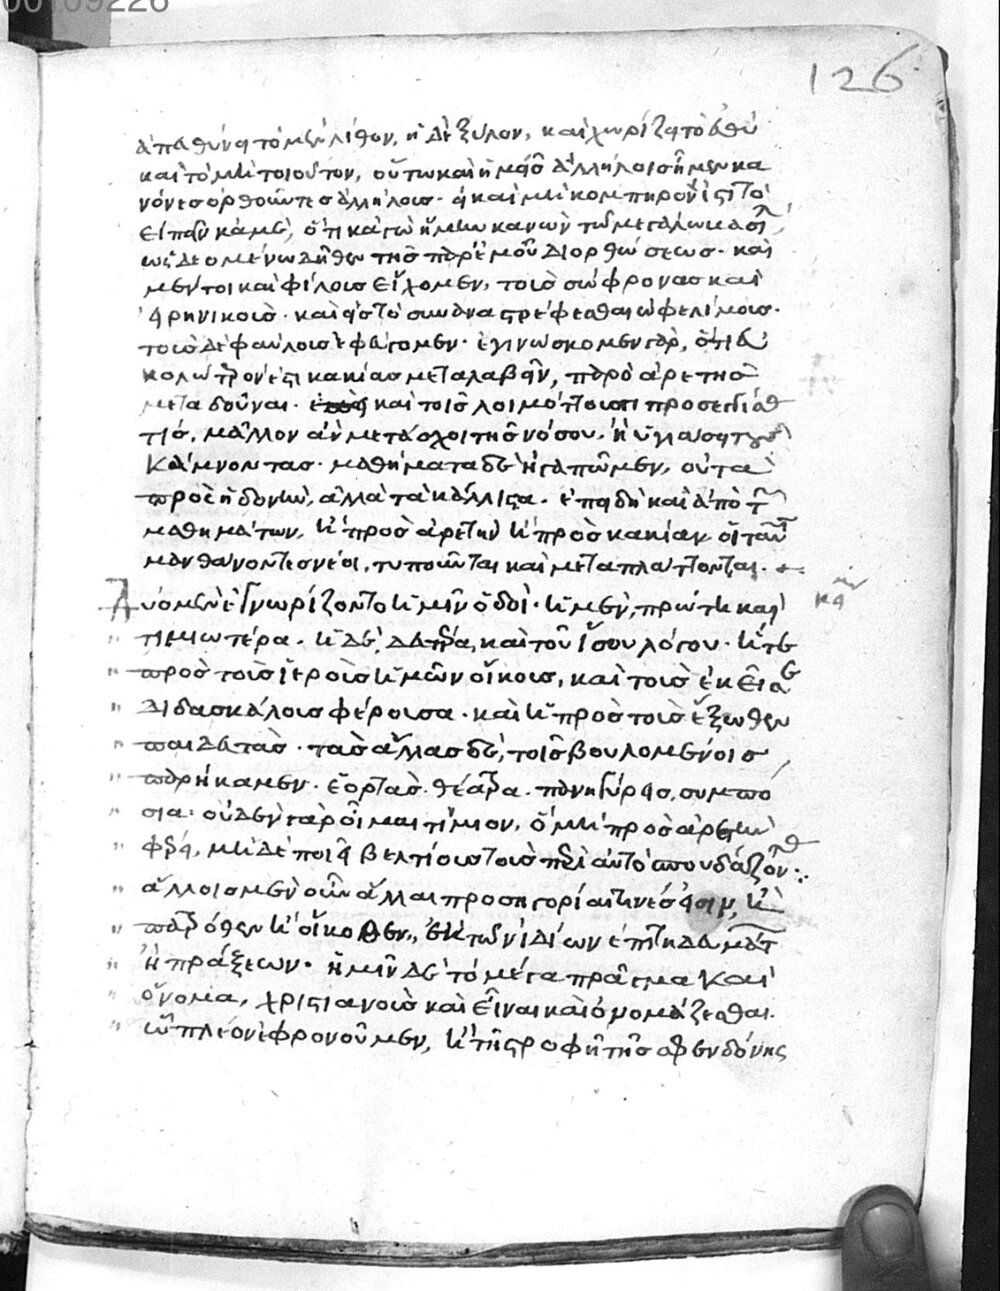 126
ἀπευθύνει τὸ μὲν λίθον, ἡ δὲ ξύλον, καὶ χωρίζει τὸ εὐθὺ
καὶ τὸ μὴ τοιοῦτον, οὕτω καὶ ἡμεῖς ἀλλήλοις ἦμεν κα
νόνες ὀρθοῦντες ἀλλήλους· εἰ καὶ μὴ κομπηρόν ἐστι τὸ
εἰπεῖν κἀμὲ, ὅτι κἀγὼ ἤμην κανὼν τῷ μεγάλῳ
ὡς δεομένῳ δῆθεν τῆς παρ' ἐμοῦ διορθώσεως· καὶ
μέντοι καὶ φίλοις εἴχομεν, τοῖς σώφρονας καὶ
εἰρηνικοῖς· καὶ εἰς τὸ συναναστρέφεσθαι ὠφελίμοις·
τοὺς δὲ φαύλους ἐφεύγομεν· ἐγινώσκομεν γὰρ, ὅτι εὐ
κολώτερόν ἐστι κακίας μεταλαβεῖν, παρὸ ἀρετῆς
μεταδοῦναι· καὶ τοῖς λοιμώττουσι προσεγγίσας
τις, μᾶλλον ἂν μετάσχοι τῆς νόσου, ἢ ὑγιάσῃ τοὺς
κάμνοντας· μαθήματα δὲ ἠγαπῶμεν, οὐ τὰ
πρὸς ἡδονὴν, ἀλλὰ τὰ κάλλιστα· ἐπειδὴ καὶ ἀπὸ τῶν
μαθημάτων, ἢ πρὸς ἀρετὴν ἢ πρὸς κακίαν οἱ ταῦτα
μανθάνοντες νέοι, τυποῦνται καὶ μεταπλάττονται·
Δύο μὲν ἐγνωρίζοντο ἡμῖν ὁδοὶ· ἡ μὲν, πρώτη καὶ
τιμιωτέρα· ἡ δὲ, δευτέρα, καὶ τοῦ ἴσου λόγου· ἥ τε
πρὸς τοὺς ἱεροὺς ἡμῶν οἴκους, καὶ τοὺς ἐκεῖσε
διδασκάλους φέρουσα· καὶ ἡ πρὸς τοὺς ἔξωθεν
παιδευτάς· τὰς ἄλλας δὲ, τοῖς βουλομένοις
παρήκαμεν· ἑορτὰς· θέατρα· πανηγύρεις, συμπό
σια· οὐδὲν γὰρ οἶμαι τίμιον, ὃ μὴ πρὸς ἀρετὴν
φέρει, μηδὲ ποιεῖ βελτίους τοὺς περὶ αὐτὸ σπουδάζοντας·
ἄλλοις μὲν οὖν ἄλλαι προσηγορίαι τινές εἰσιν, ἢ
πατρόθεν ἢ οἴκοθεν, ἐκ τῶν ἰδίων ἐπιτηδευμάτων
ἢ πράξεων· ἡμῖν δὲ τὸ μέγα πρᾶγμα καὶ
ὄνομα, χριστιανοὺς καὶ εἶναι καὶ ὀνομάζεσθαι·
ᾧ πλέον ἐφρονοῦμεν, ἢ τῇ στροφῇ τῆς σφενδόνης